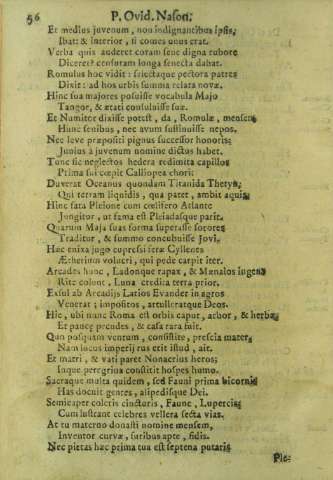 56 P. Ovid. Nason.
Et medius juvenum, non indignantibus ipsis,
Ibat: & interior, si comes unus erat.
Verba quis auderet coram sene digna rubore
Diceret? censuram longa senecta dabat.
Romulus hoc vidit: selectaque pectora patres
Dixit: ad hos urbis summa relata novæ.
Hinc sua majores posuisse vocabula Majo
Tangor, & ætati consuluisse suæ.
Et Numitor dixisse potest, da, Romule, mensem
Hunc senibus, nec avum sustinuisse nepos.
Nec leve præpositi pignus successor honoris:
Junius à juvenum nomine dictus habet.
Tunc sic neglectos hedera redimita capillos
Prima sui cœpit Calliopea chori:
Duxerat Oceanus quondam Titanida Thetyn,
Qui terram liquidis, qua patet, ambit aquis.
Hinc sata Pleione cum cœlifero Atlante
Jungitur, ut fama est Pleiadasque parit.
Quarum Maja suas forma superasse sorores
Traditur, & summo concubuisse Jovi.
Hæc enixa jugo cupressi feræ Cyllenes
Ætherium volucri, qui pede carpit iter.
Arcades hunc, Ladonque rapax, & Mænalos ingens
Rite colunt, Luna credita terra prior.
Exsul ab Arcadijs Latios Evander in agros
Venerat; impositos, attulleratque Deos.
Hic, ubi nunc Roma est orbis caput, arbor, & herbæ
Et paucæ pecudes, & casa rara fuit.
Quo posquam ventum, consistite, præscia mater,
Nam locus imperij rus erit istud, ait.
Et matri, & vati paret Nonacrius heros;
Inque peregrina constitit hospes humo.
Sacraque multa quidem, sed Fauni prima bicornis
Has docuit gentes, alipedisque Dei.
Semicaper coleris cinctutis, Faune, Lupercis,
Cum lustrant celebres vellera secta vias.
At tu materno donasti nomine mensem,
Inventor curvæ, furibus apte, fidis.
Nec pietas hæc prima tua est septena putaris
Ple-